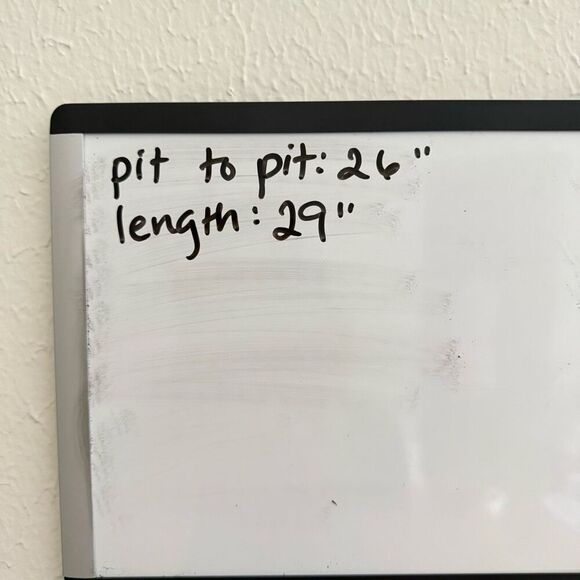 pit to pit: 26"
length: 29"